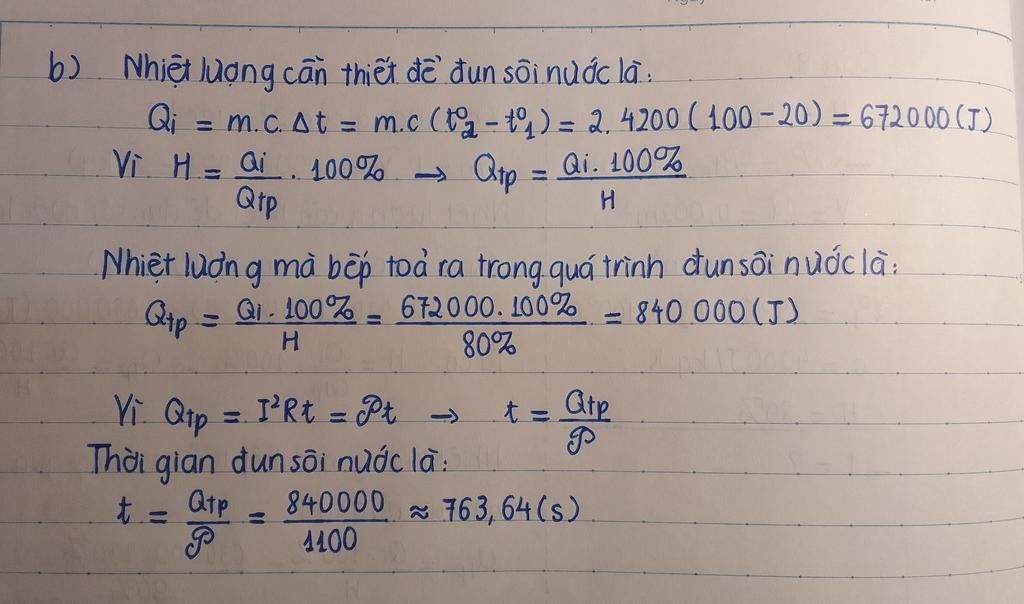 b) Nhiệt lượng cần thiết để đun sôi nước là:
Qi = m.c.Δt = m.c (t°2 - t°1) = 2. 4200 (100 - 20) = 672000 (J)
Vì H = Qi/Qtp . 100% → Qtp = Qi. 100%/H
Nhiệt lượng mà bếp toả ra trong quá trình đun sôi nước là:
Qtp = Qi. 100%/H = 672000. 100%/80% = 840 000 (J)
Vì Qtp = I²Rt = 𝒫t → t = Qtp/𝒫
Thời gian đun sôi nước là:
t = Qtp/𝒫 = 840000/1100 ≈ 763,64 (s)